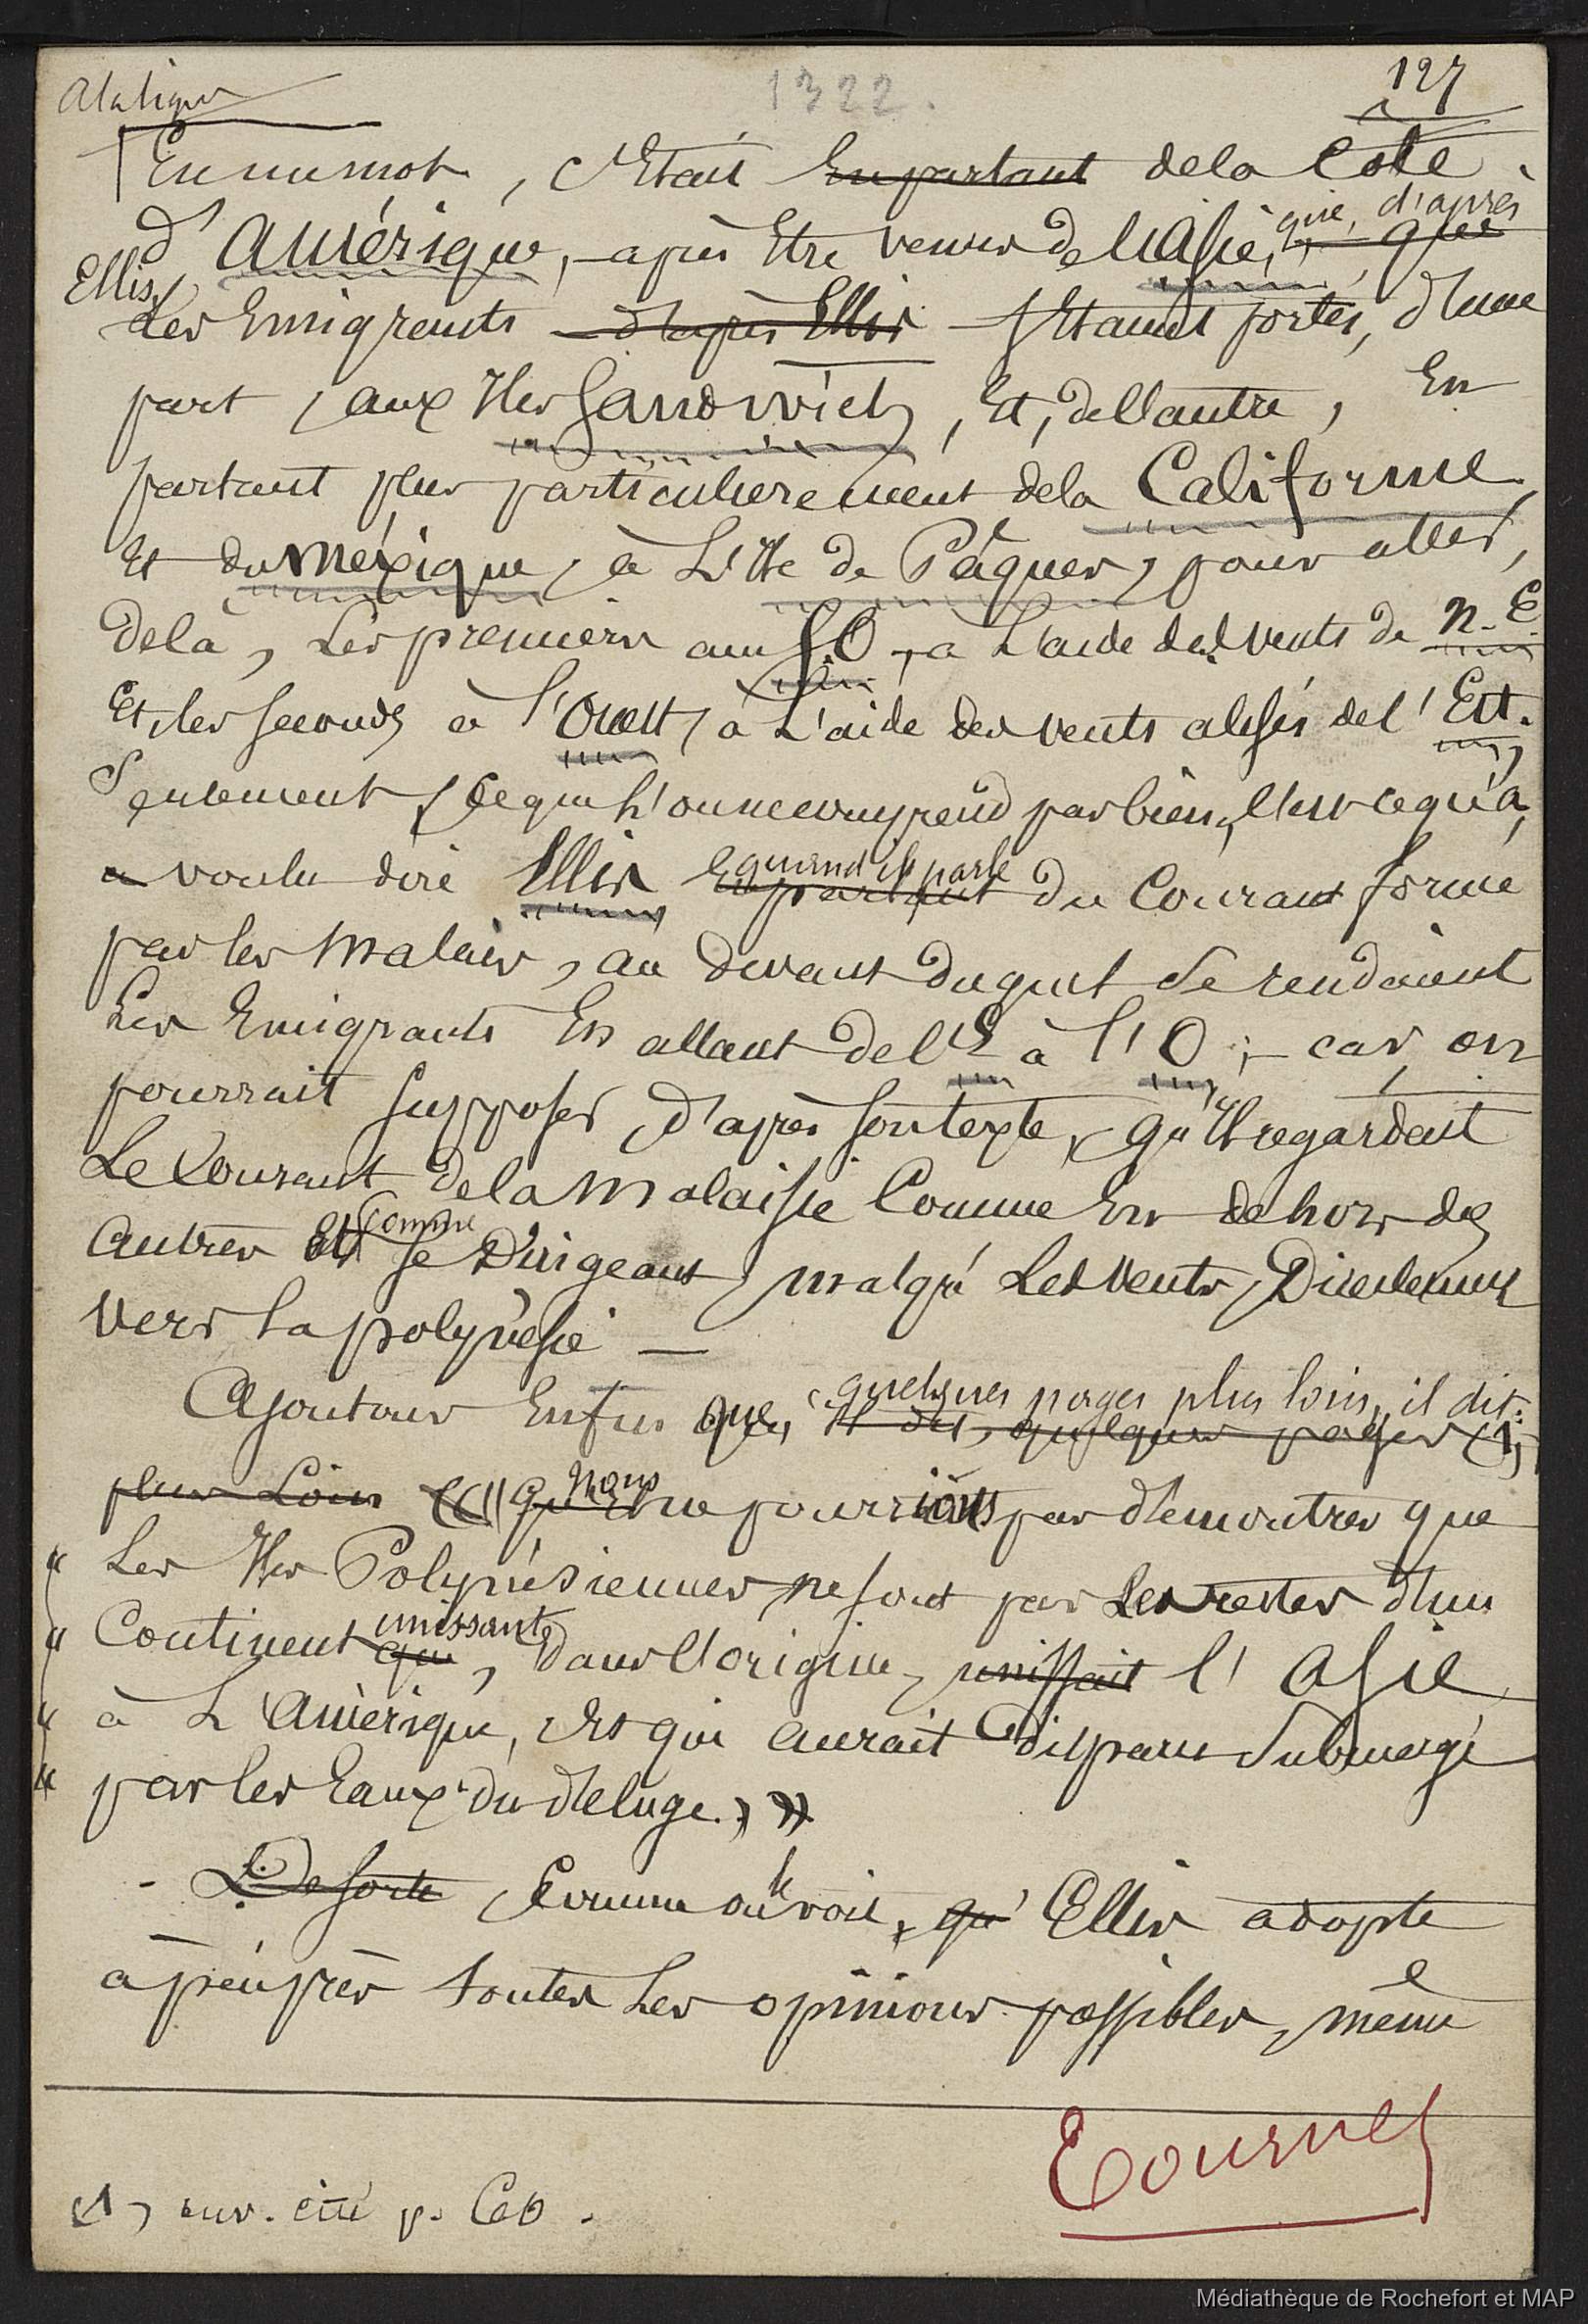 1322.
127
En un mot, c'était en partant de la Côte
d'Amérique, après être venus de l'Asie, que, d'après
Ellis,
les Emigrants d'après Ellis s'étaient portés, d'une
part, aux Iles Sandwich, et, de l'autre, en
partant plus particulièrement de la Californie
et du Méxique, à L'Ile de Pâques, pour aller,
delà, les premiers au S.O, à L'aide des vents de N.E.
et les seconds à l'Ouest, à L'aide des vents alisés de l'Est.
Seulement, ce qu'l'on ne comprend pas bien, c'est ce qu'a
a voulu dire Ellis quand il parle du Courant formé
par les Malais, au devant duquel se rendaient
les Emigrants en allant de l'E à l'O ; car, on
pourrait supposer, d'après son texte, qu'il regardait
Le Courant de la Malaisie Comme en dehors des
autres et comme se Dirigeant, malgré les vents, Directement
vers la polynésie —
Ajoutons Enfin que, quelques pages plus loin, il dit:
il dit, quelques pages (1)
plus Loin « qu' Nous ne pourrions pas démontrer que
« les Iles Polynésiennes ne sont pas les restes d'un
« Continent qui unissant, dans l'origine, unissait l'Asie
« à L'Amérique, et qui aurait disparu submergé
« par les Eaux du déluge. »
- De sorte, Comme on le voit, qu' Ellis adopte
à peu près toutes les opinions possibles, même
(1) ouv. cité p.
Tournez
Médiathèque de Rochefort et MAP